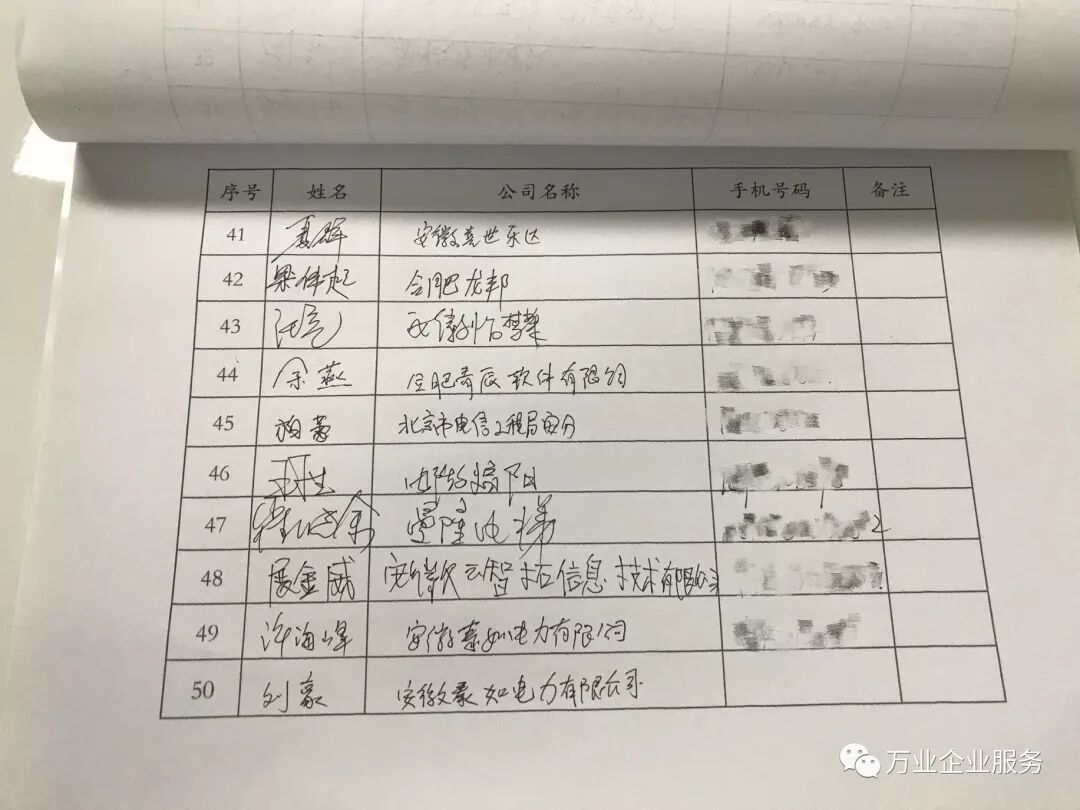 序号 姓名 公司名称 手机号码 备注
41 夏辉 安徽喜世乐达
42 梁伟起 合肥龙邦
43 汪亮
44 余燕 合肥奇辰软件有限公司
45 北京市电信工程局安分
46
47 曼隆电梯
48 屈金威 安徽云智拓信息技术有限公司
49 许海峰 安徽豪如电力有限公司
50 刘豪 安徽豪如电力有限公司
万业企业服务